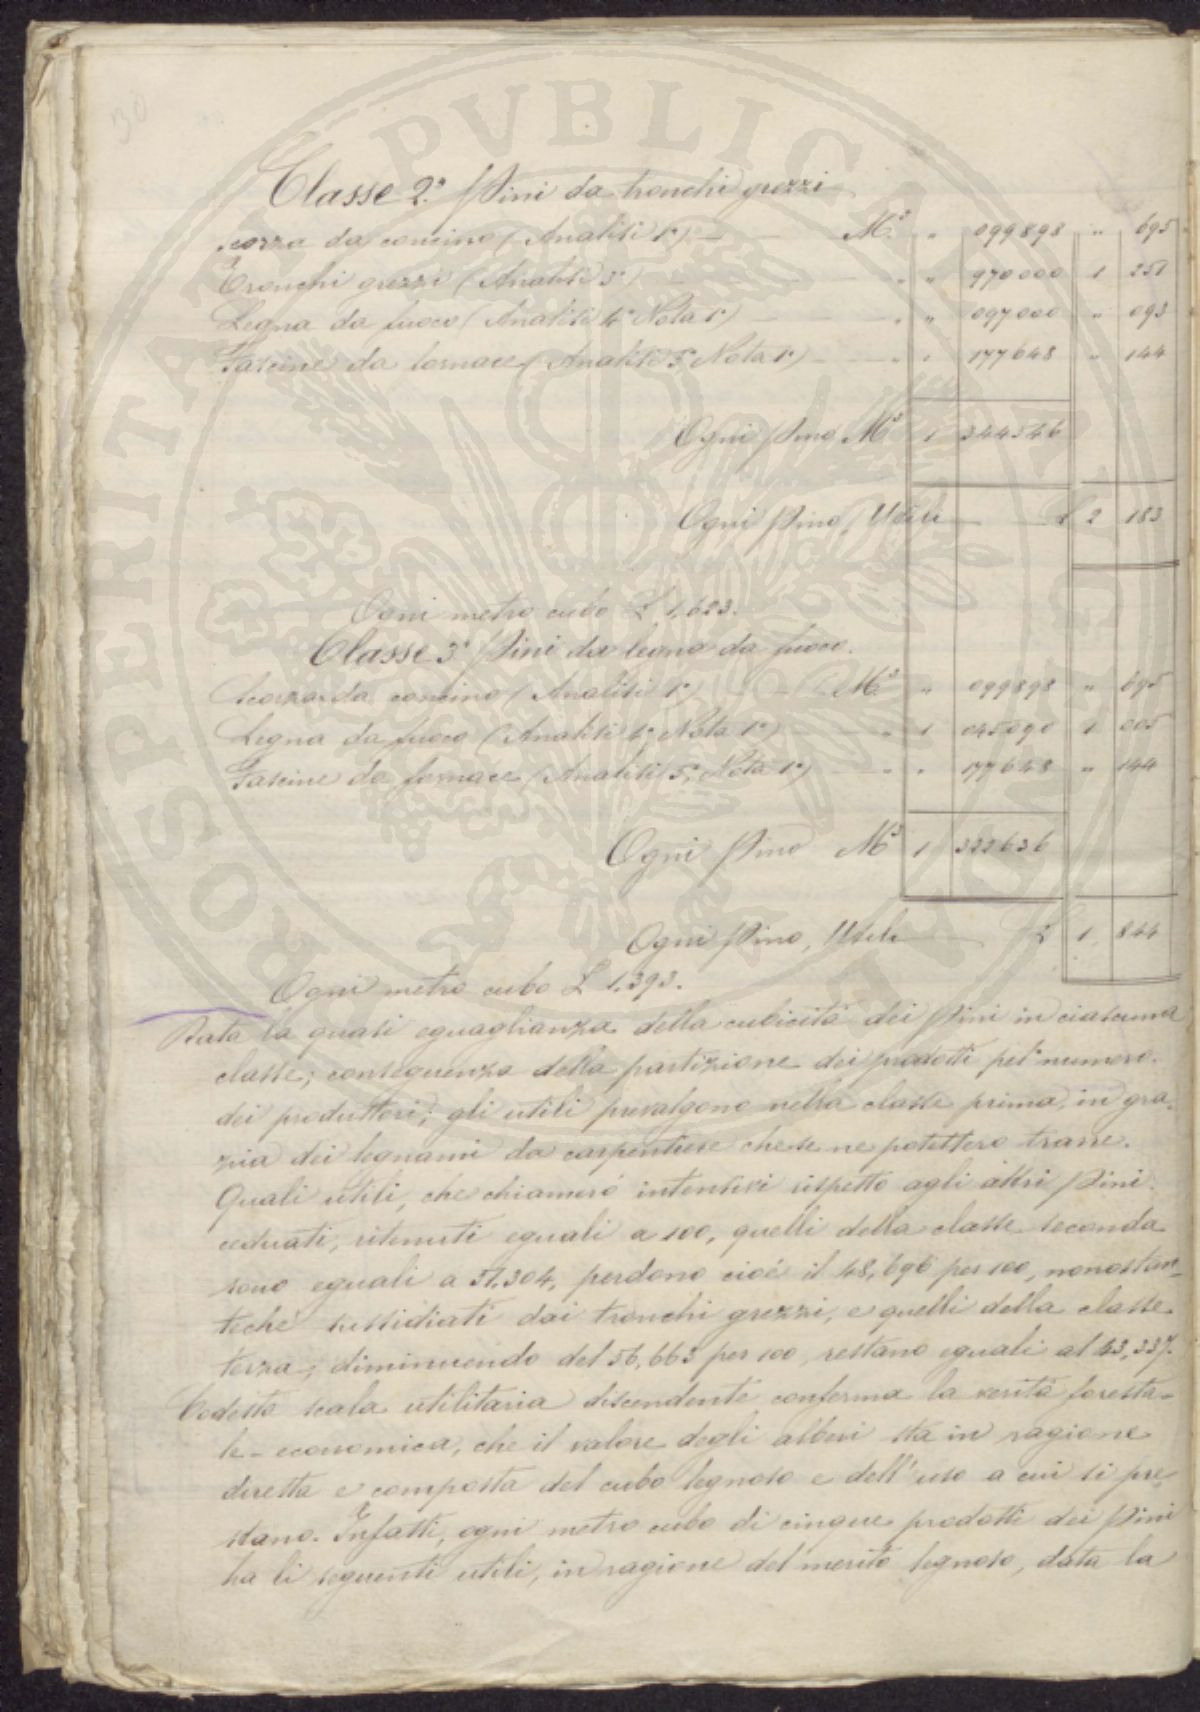 30
PROSPERITATI PVBLICAE
Classe 2.ª Pini da tronchi grezzi
Scorza da concino (Analisi 1ª) — M.³ " 099898 " 695
Tronchi grezzi (Analisi 3ª) — " " 970000 1 251
Legna da fuoco (Analisi 4ª Nota 1ª) — " " 097000 " 093
Fascine da fornace (Analisi 5ª Nota 1ª) — " " 177648 " 144
Ogni Pino M³ 1 344546
Ogni Pino, Utili — £ 2 183
Ogni metro cubo £ 1,623.
Classe 3ª Pini da legna da fuoco.
Scorza da concino (Analisi 1ª) — M.³ " 099898 " 695
Legna da fuoco (Analisi 4ª Nota 1ª) — " 1 045090 1 005
Fascine da fornace (Analisi 5ª, Nota 1ª) — " " 177648 " 144
Ogni Pino M³ 1 322636
Ogni Pino, Utili — £ 1, 844
Ogni metro cubo £ 1,393.
Data la quasi eguaglianza della cubicità dei Pini in ciascuna
classe; conseguenza della partizione dei prodotti pel numero
dei produttori; gli utili prevalgono nella classe prima, in gra-
zia dei legnami da carpentiere che se ne potettero trarre.
Quali utili, che chiamerò intensivi rispetto agli altri Pini
ceduati, ritenuti eguali a 100, quelli della classe seconda
sono eguali a 51,304, perdono cioè il 48,696 per 100, nonostan-
techè sussidiati dai tronchi grezzi, e quelli della classe
terza, diminuendo del 56,663 per 100, restano eguali al 43,337.
Codesta scala utilitaria discendente conferma la verità foresta-
le-economica, che il valore degli alberi sta in ragione
diretta e composta del cubo legnoso e dell'uso a cui si pre-
stano. Infatti, ogni metro cubo di cinque prodotti dei Pini
ha li seguenti utili, in ragione del merito legnoso, data la